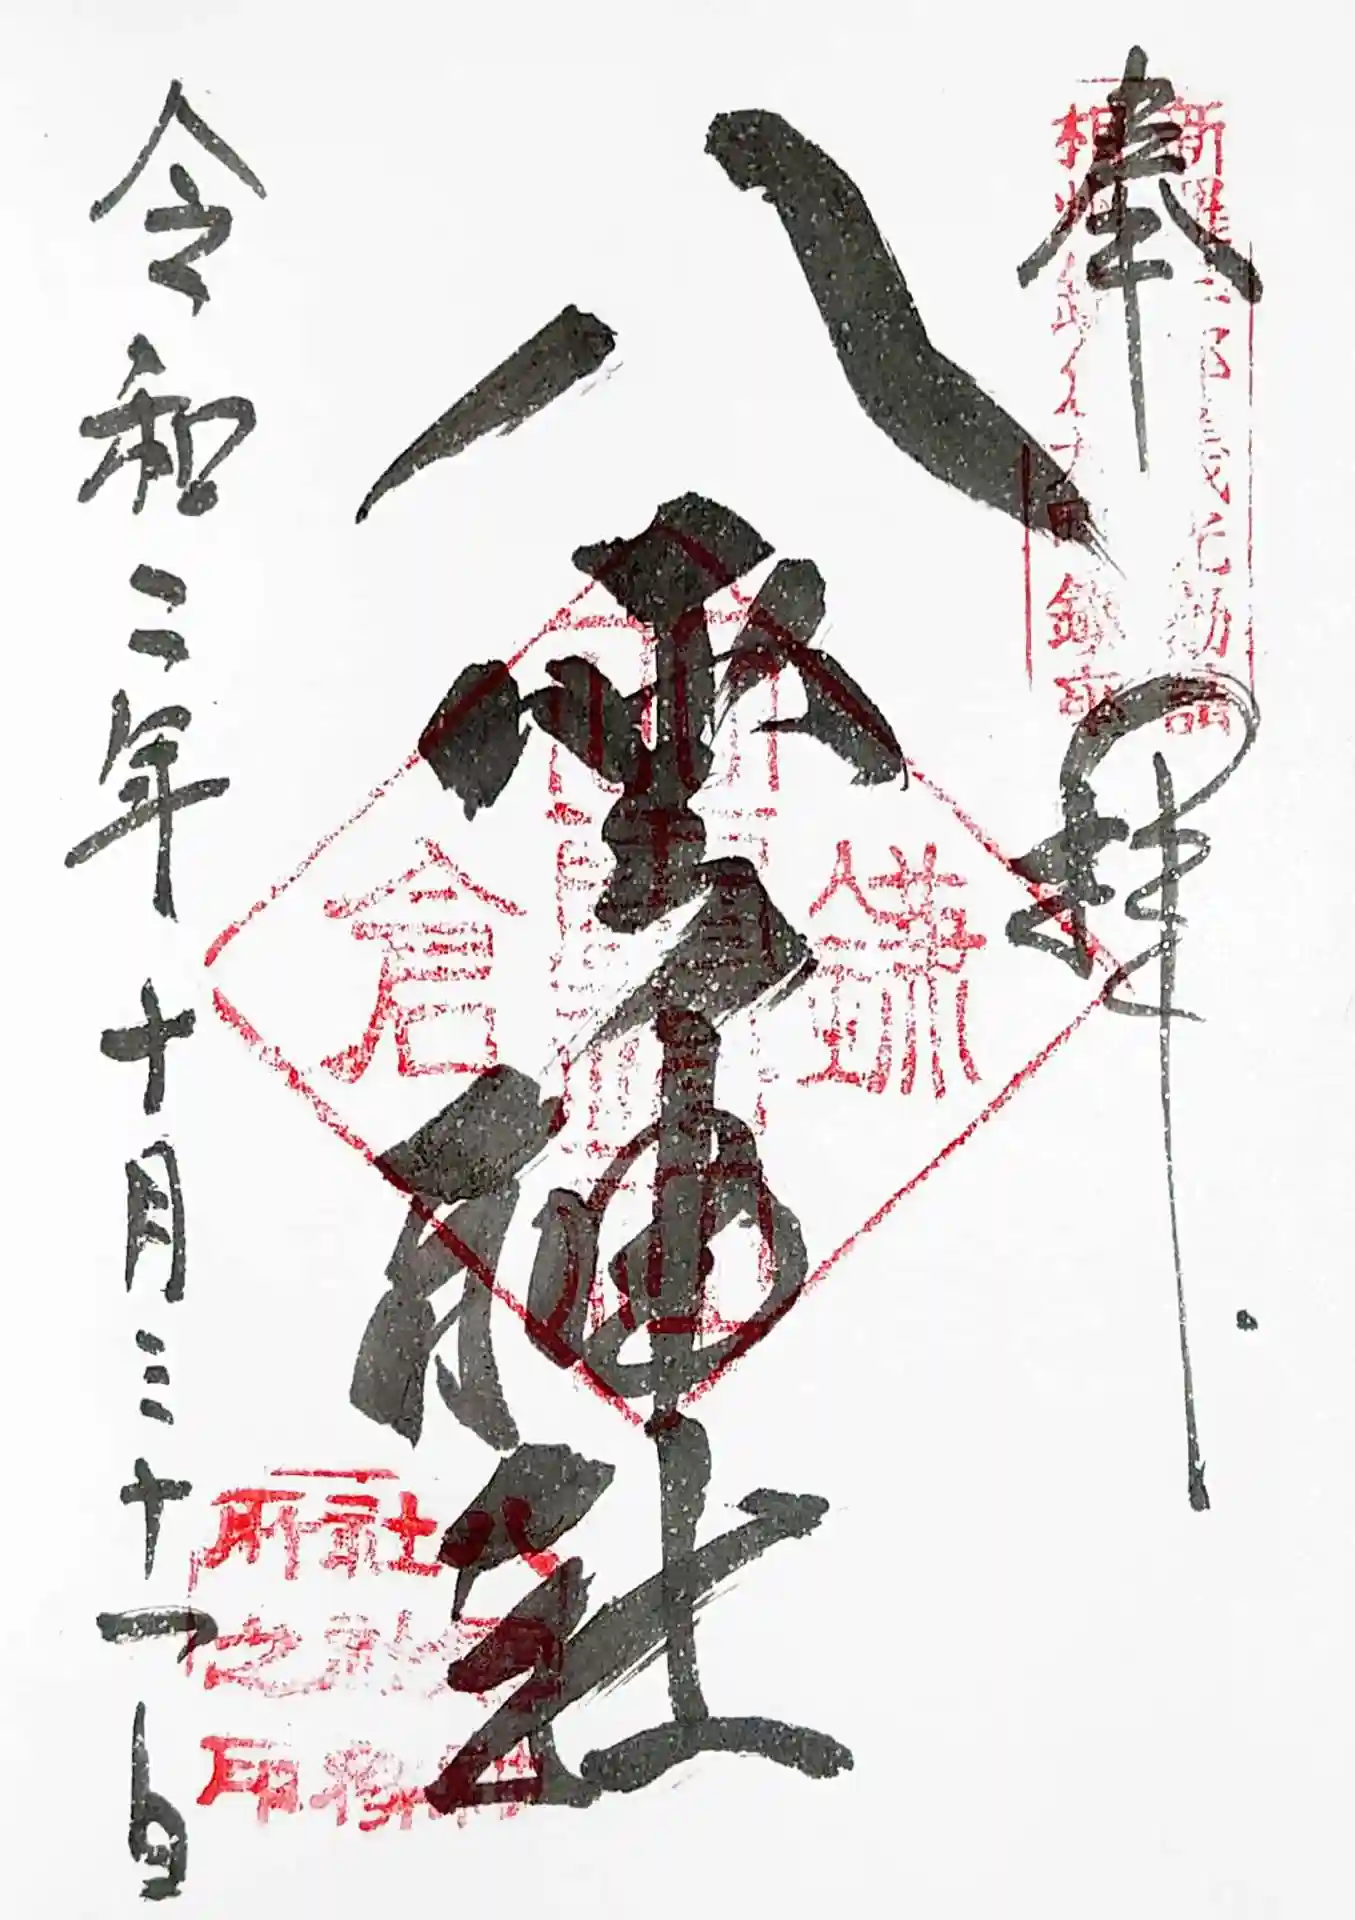 奉拝
八雲神社
令和二年十月三十一日
新羅三郎義光勧請
相州鎌倉大町鎮座
鎌倉